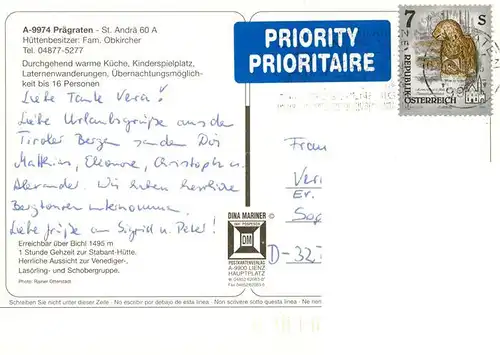 A-9974 Prägraten - St. Andrä 60 A
Hüttenbesitzer: Fam. Obkircher
Tel. 04877-5277
Durchgehend warme Küche, Kinderspielplatz,
Laternenwanderungen, Übernachtungsmöglich-
keit bis 16 Personen
Liebe Tante Vera!
Liebe Urlaubsgrüße aus den
Tiroler Bergen senden Dir
Matthias, Eleonore, Christoph u.
Alexander. Wir haben herrliche
Bergtouren unternommen.
Liebe Grüße an Sigrid u. Peter!
Erreichbar über Bichl 1495 m
1 Stunde Gehzeit zur Stabant-Hütte.
Herrliche Aussicht zur Venediger-,
Lasörling- und Schobergruppe.
Photo: Rainer Ottenstadt
PRIORITY
PRIORITAIRE
7 S
REPUBLIK
ÖSTERREICH
Frau
D-32
DINA MARINER ©
DM
POSTKARTENVERLAG
A-9900 LIENZ
HAUPTPLATZ
Schreiben Sie nicht unter dieser Zeile - No escribir por debajo de esta linea - Non scrivere sotto questa linea